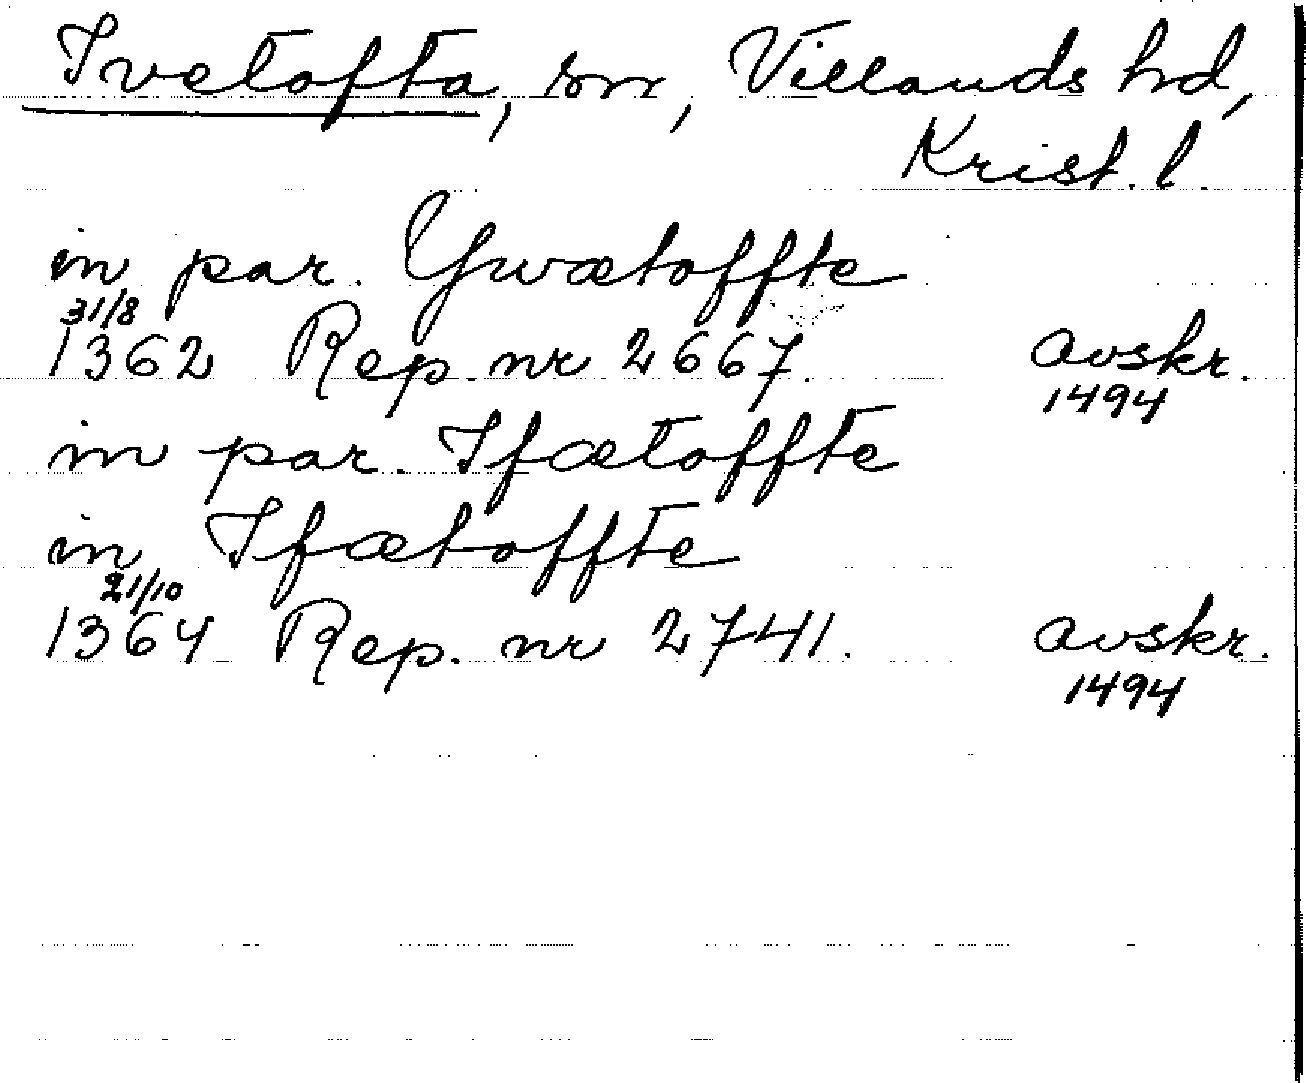 Ivetofta, sn, Villands hd,
Krist. l.
in par. Ywætoffte
31/8
1362 Rep. nr 2667. avskr.
1494
in par. Ifætoffte
in Ifætoffte
21/10
1364 Rep. nr 2741. avskr.
1494